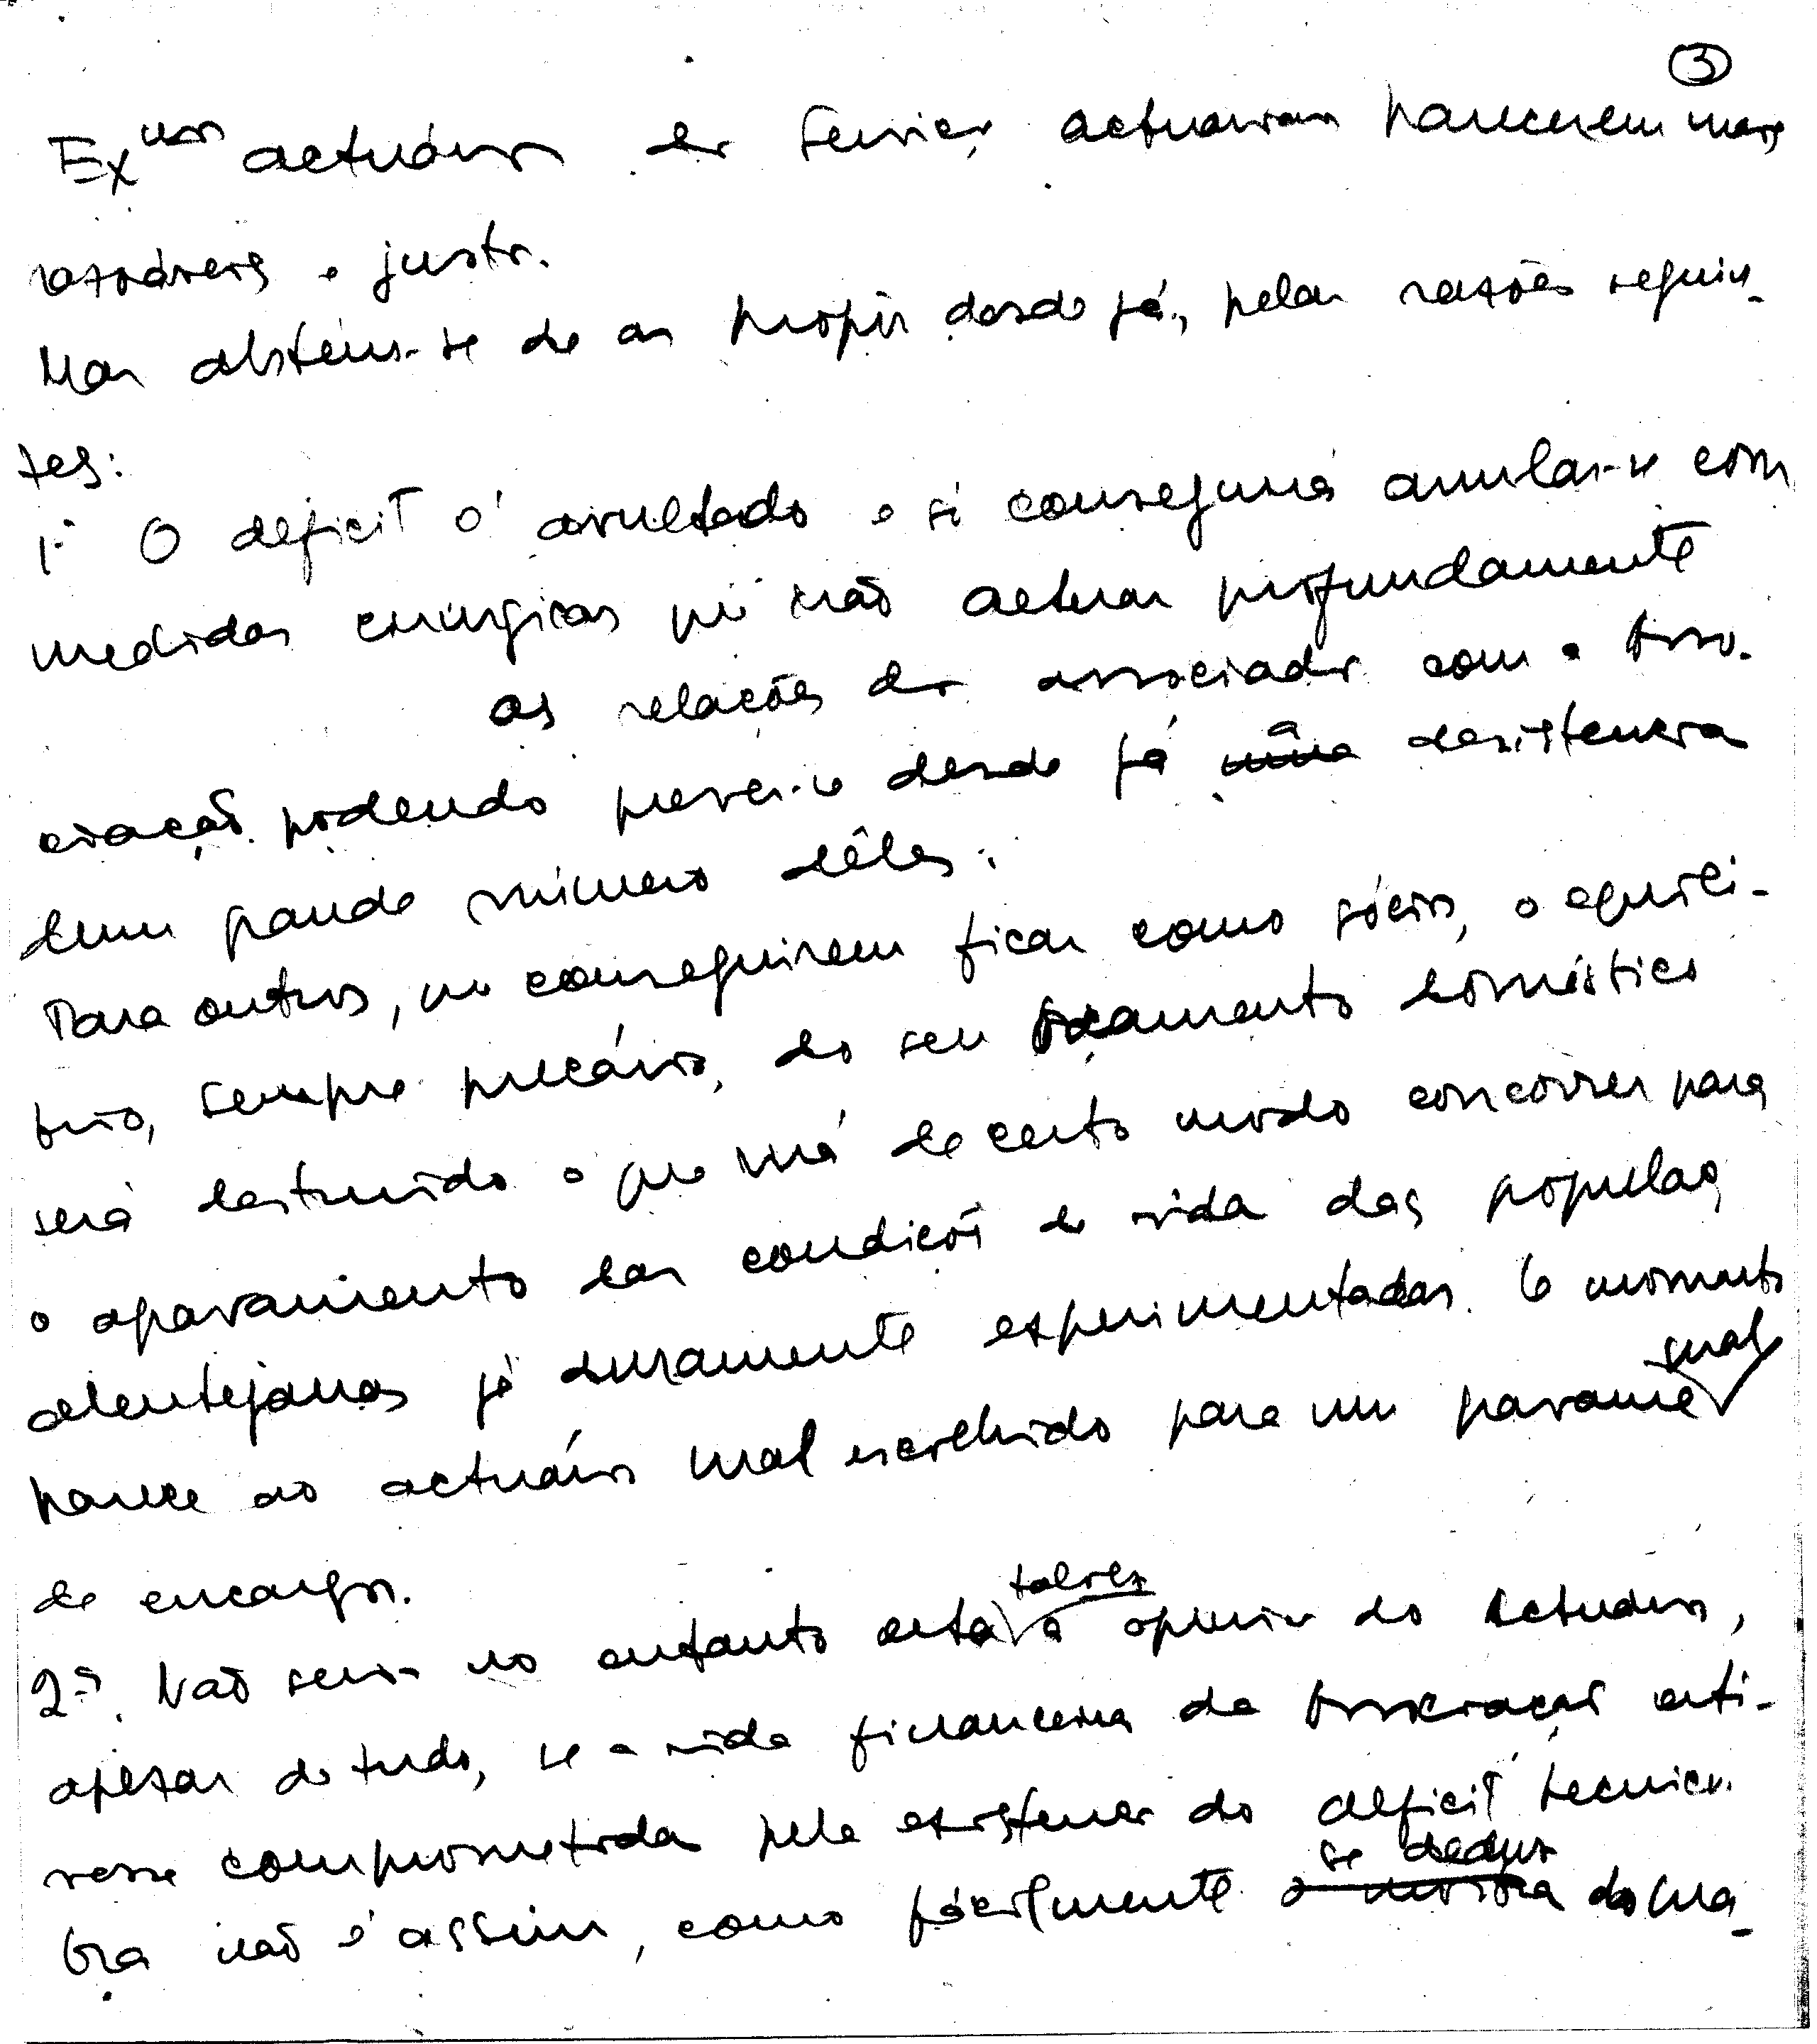 ③
Ex^mos actuários dos Serviços actuariais parecerem mais
razoáveis e justos.
Mas abstém-se de as propôr desde já, pelas razões seguin-
tes:
1.ª O deficit é avultado e só conseguirá anular-se com
medidas cirúrgicas que irão actuar profundamente
as relações dos associados com a Asso-
ciação, podendo prever-se desde já a desistencia
dum grande número dêles.
Para outros, que conseguirem ficar como sócios, o equilí-
brio, sempre precário, do seu orçamento doméstico
será destruido o que irá de certo modo concorrer para
o agravamento das condições de vida das populações
alentejanas já duramente experimentadas. O momento
parece ao actuário mal escolhido para um gravame geral
de encargos.
2.ª. Não seria no entanto esta talvez a opinião do Actuário,
apezar de tudo, se a vida financeira da Associação esti-
vesse comprometida pela existencia do deficit técnico.
Ora não é assim, como fácilmente se deduz do ma-